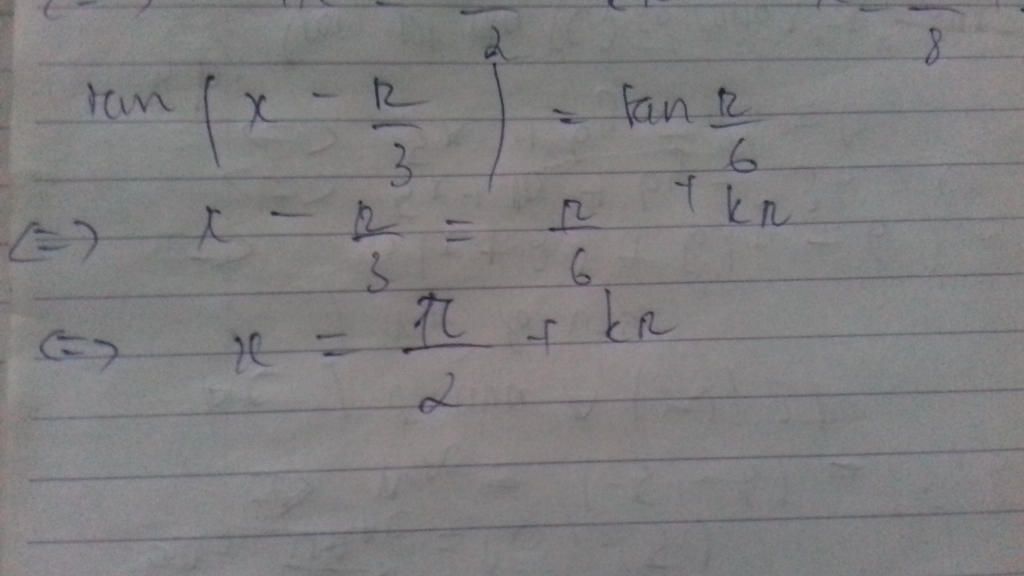 2 8
tan (x - π/3) = tan π/6
<=> x - π/3 = π/6 + kπ
<=> x = π/2 + kπ